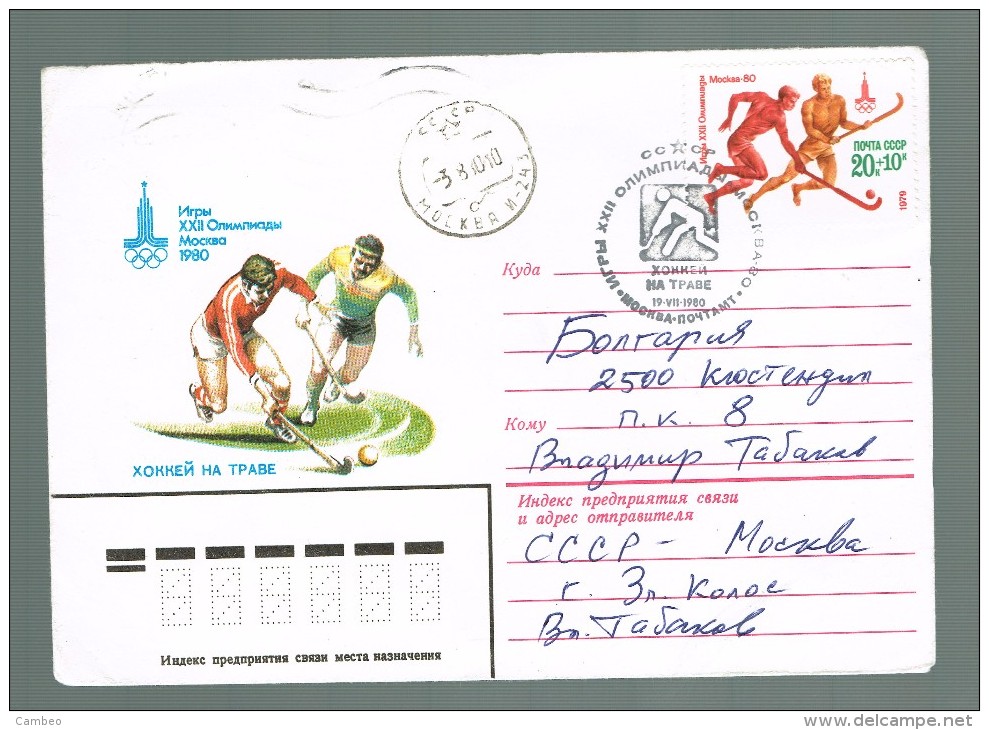 Игры
XXII Олимпиады
Москва
1980
ХОККЕЙ НА ТРАВЕ
СССР
-3.8.80 10
МОСКВА И-243
Игры XXII Олимпиады
Москва·80
ПОЧТА СССР
20к+10к
1979
СССР
ИГРЫ XXII ОЛИМПИАДЫ МОСКВА-80
ХОККЕЙ
НА ТРАВЕ
19·VII·1980
•МОСКВА·ПОЧТАМТ•
Куда
Болгария
2500 Кюстендил
Кому п.к. 8
Владимир Табаков
Индекс предприятия связи
и адрес отправителя
СССР - Москва
г. Зл. Колос
Вл. Табаков
Индекс предприятия связи места назначения
Cambeo
www.delcampe.net